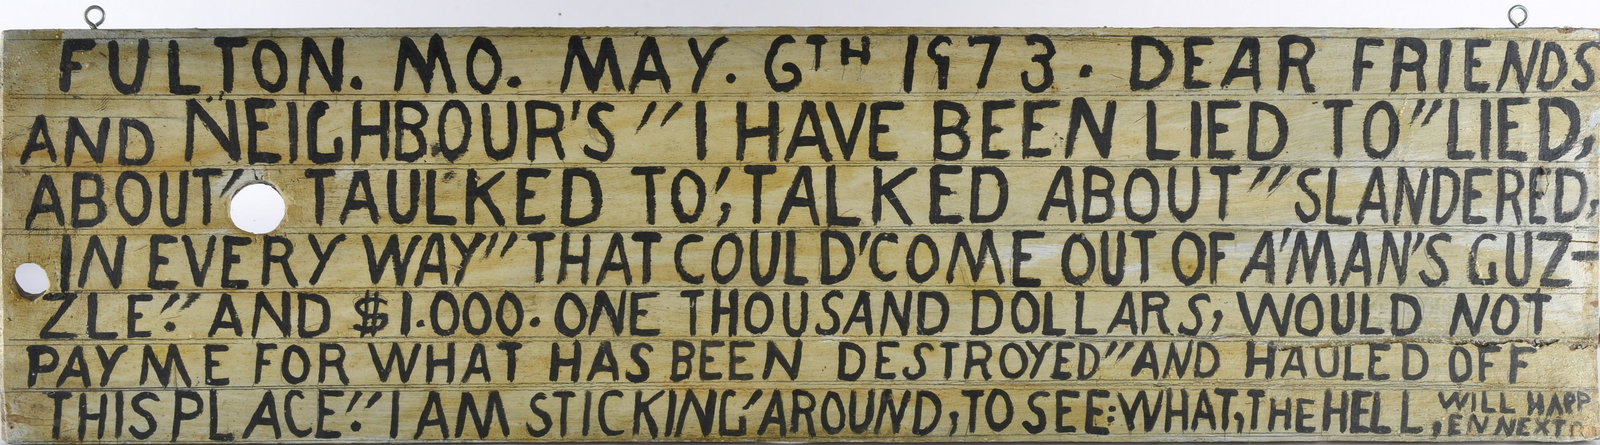 FULTON. MO. MAY. 6TH 1973. DEAR FRIENDS
AND NEIGHBOUR'S "I HAVE BEEN LIED TO" LIED,
ABOUT" TAULKED TO', TALKED ABOUT" SLANDERED,
IN EVERY WAY" THAT COULD' COME OUT OF A' MAN'S GUZ-
ZLE." AND $1.000. ONE THOUSAND DOLLARS, WOULD NOT
PAY ME FOR WHAT HAS BEEN DESTROYED" AND HAULED OFF
THIS PLACE." I AM STICKING' AROUND, TO SEE: WHAT, THE HELL, WILL HAPP
EN NEXT